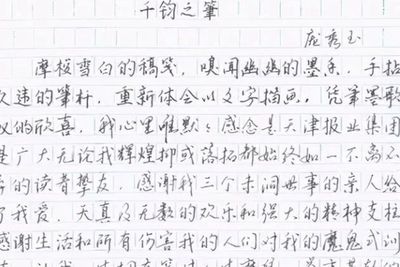 千钧之筆
庞秀玉
摩梭雪白的稿笺，嗅闻幽幽的墨香，手拈
久违的筆杆，重新体会以文字描画，凭筆墨歌
的欣喜，我心里唯默々感念是天津报业集团
是广大无论我辉煌抑或落拓都始终如一不离不
的读者挚友，感谢我三个未谙世事的亲人给
了我爱，天真及无数的欢乐和强大的精神支柱
感谢生活和所有伤害我的人们对我的魔鬼式训